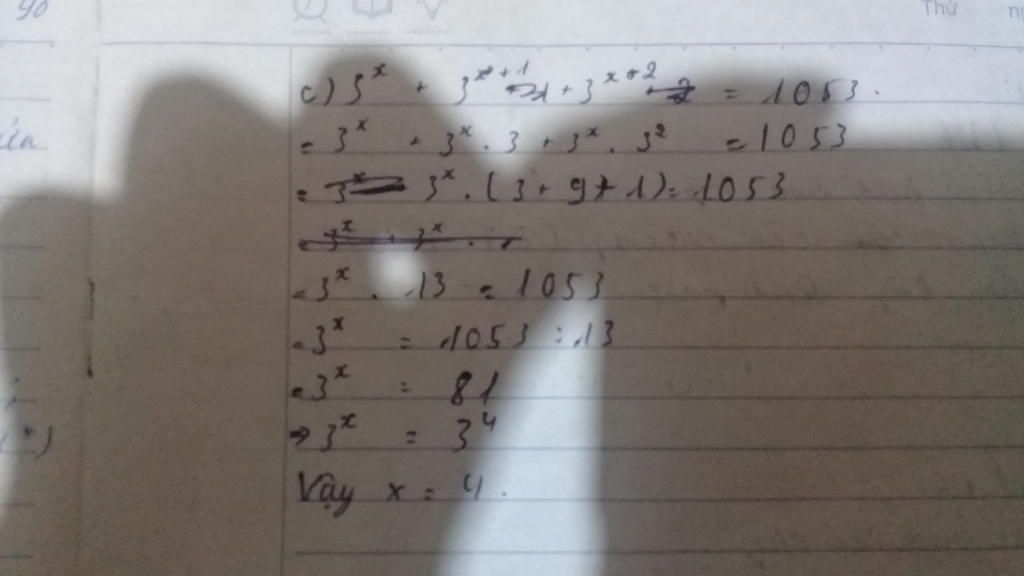 90
Thứ
c) 3^x + 3^{x+1} + 3^{x+2} = 1053.
= 3^x + 3^x . 3 + 3^x . 3^2 = 1053
= 3^x . (3 + 9 + 1) = 1053
= 3^x . 13 = 1053
= 3^x = 1053 : 13
= 3^x = 81
⇒ 3^x = 3^4
Vậy x = 4.